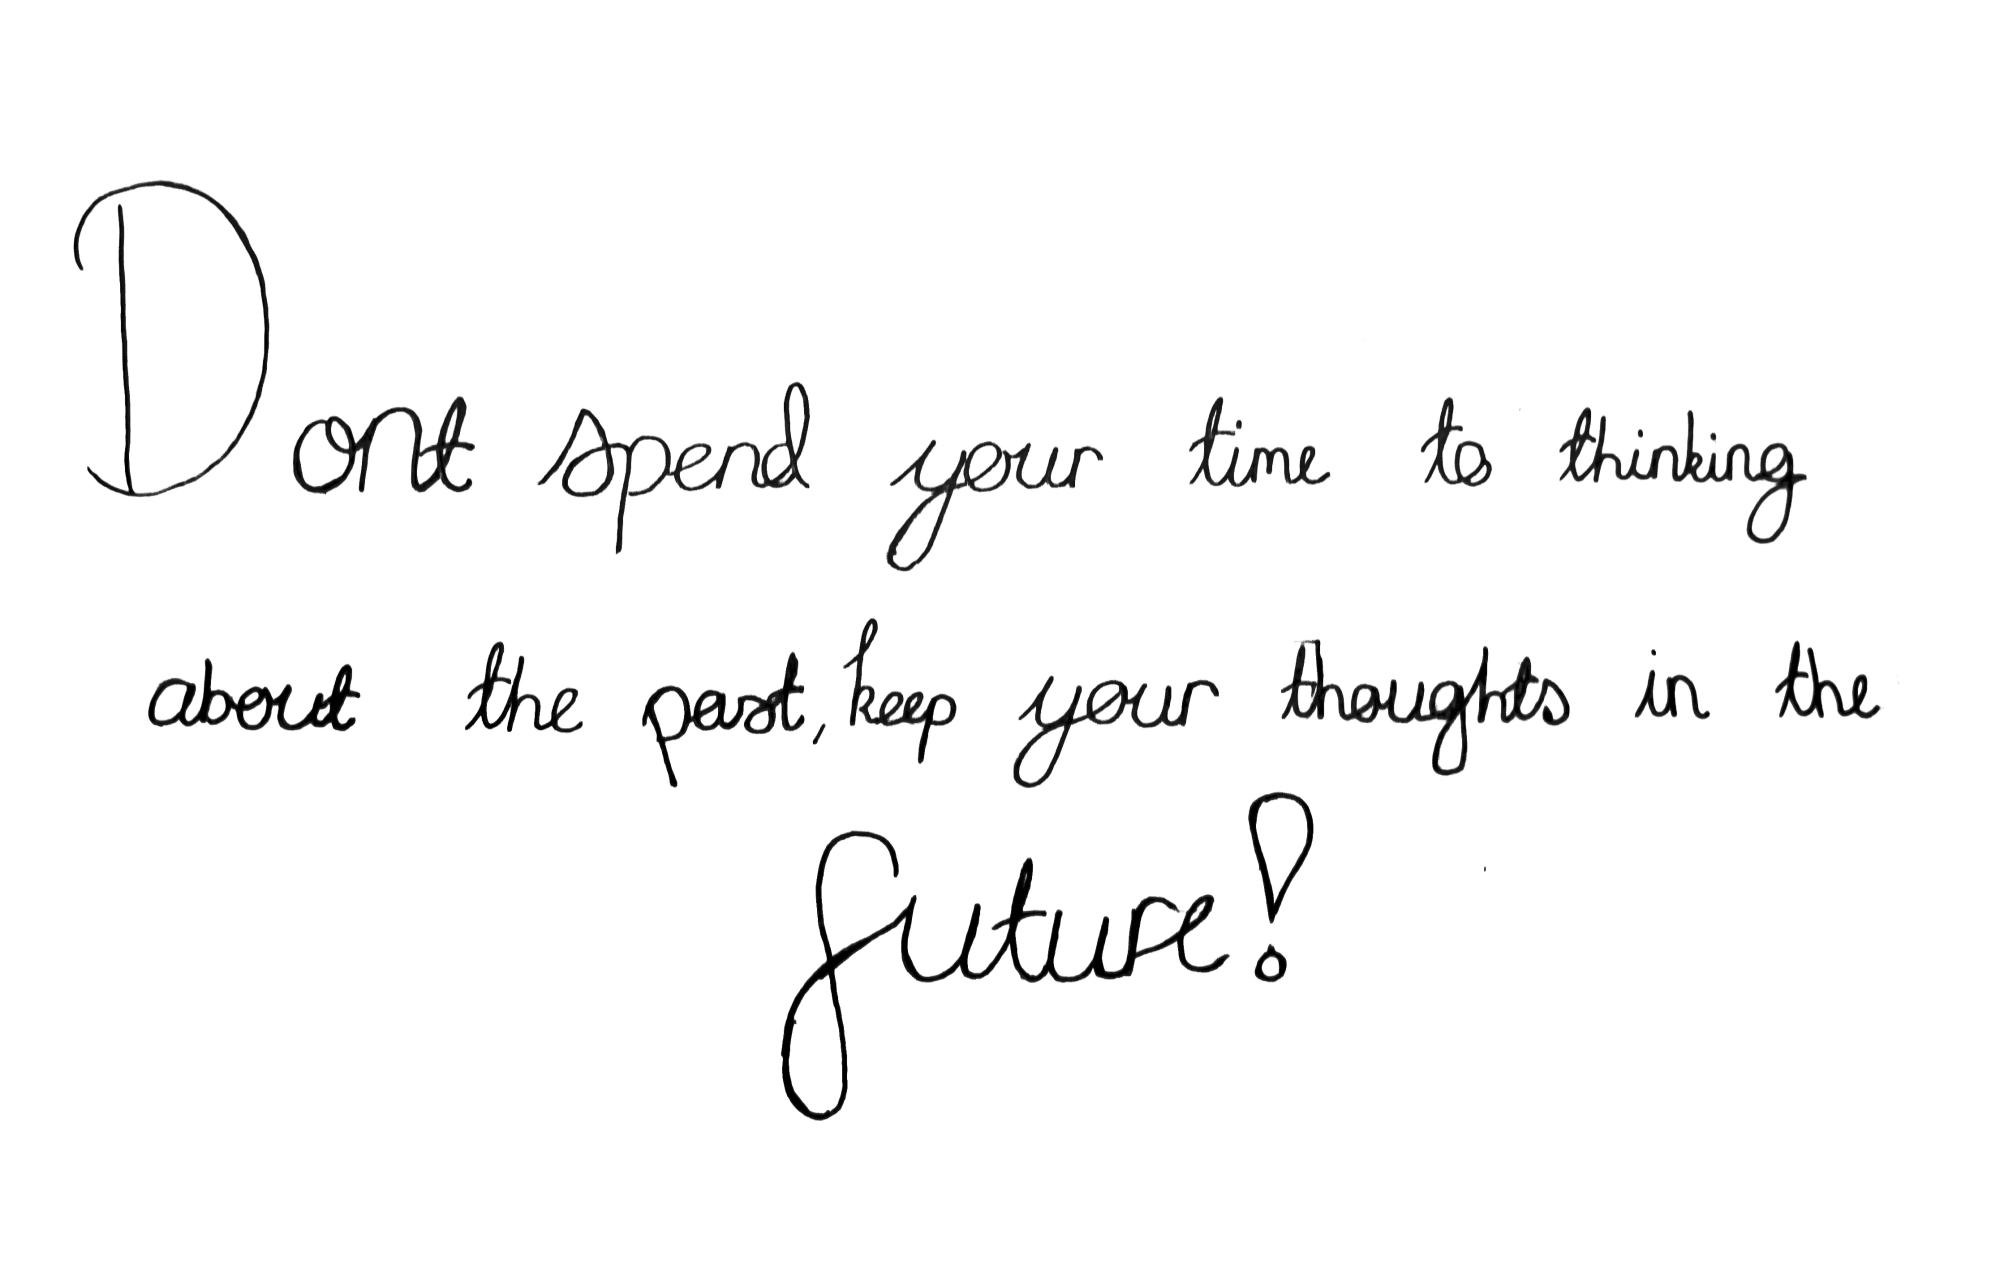 Dont spend your time to thinking
about the past, keep your thoughts in the
future!